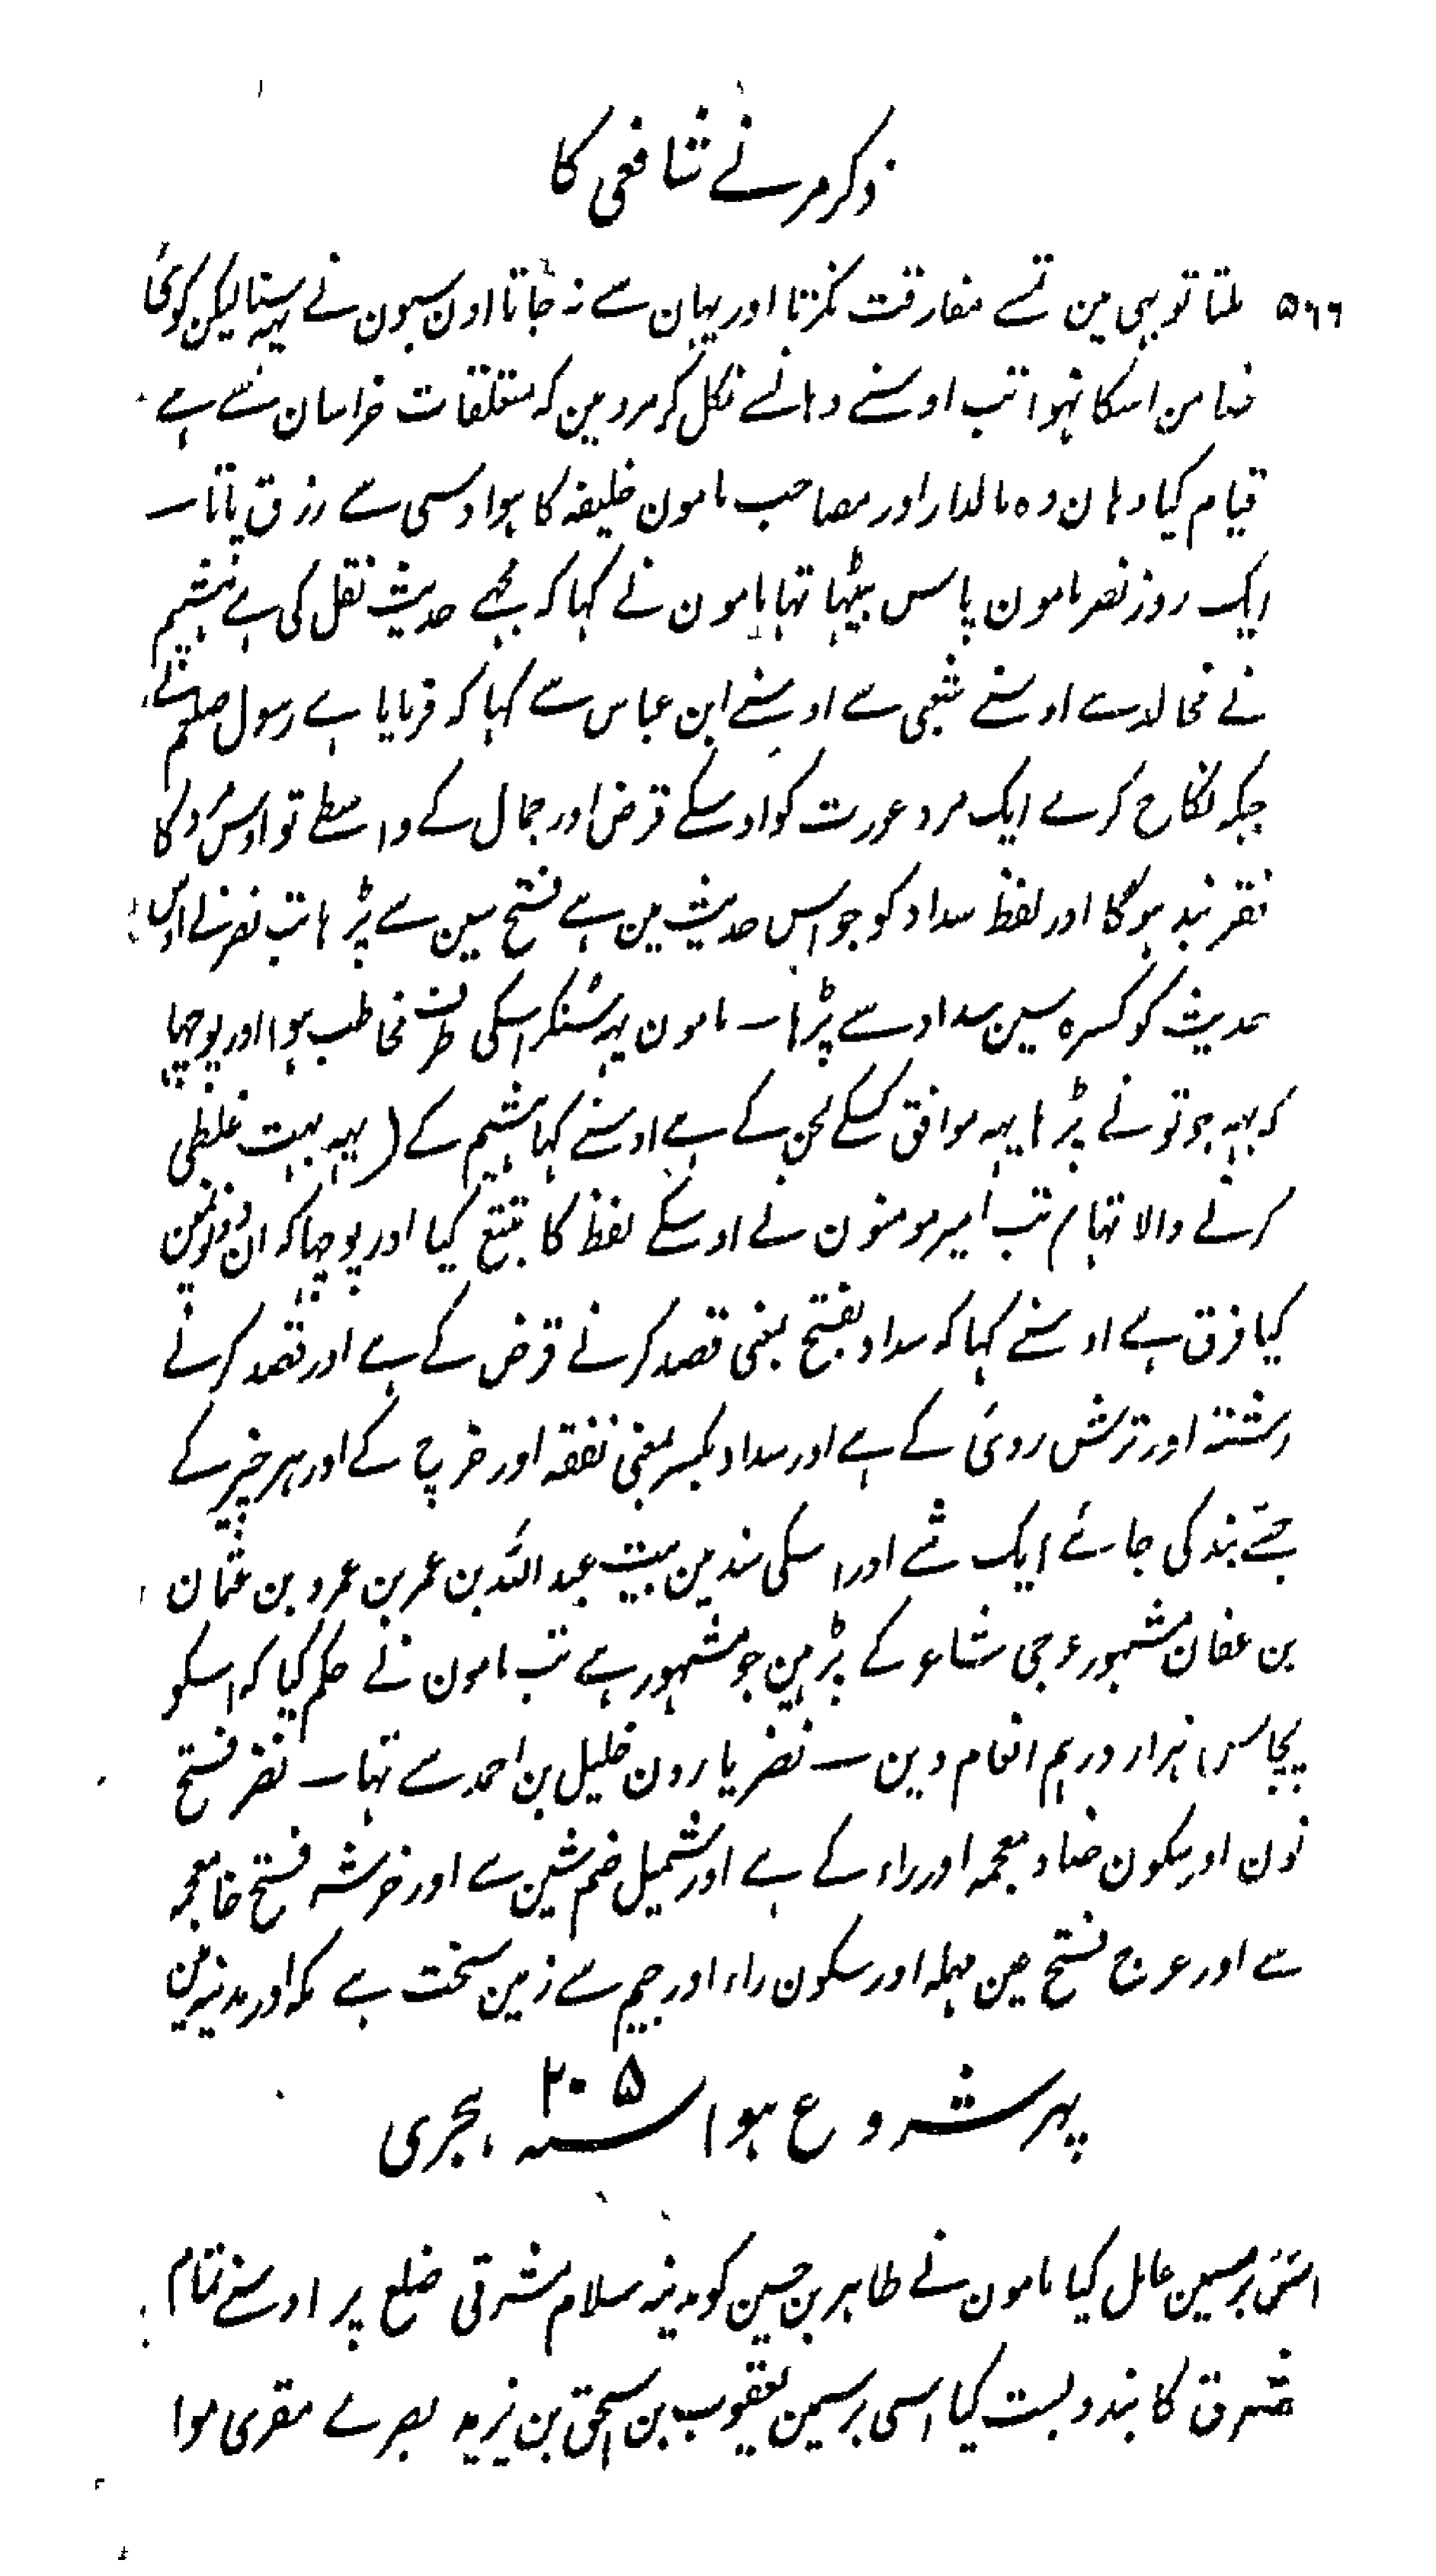 ذکر مرنے شافعی کا
۵۶۶
ملتا تو بہی مین تمسے مفارقت نکرتا اور یہان سے نہ جاتا اون سبون نے یہہ سنا لیکن کوئی
ضامن اسکا نہوا تب اوسنے وہانسے نکل کر مرو مین کہ متعلقات خراسان سے ہے
قیام کیا وہان وہ مالدار اور مصاحب مامون خلیفہ کا ہوا وسی سے رزق پاتا ۔
ایک روز نضر مامون پاس بیٹہا تہا مامون نے کہا کہ مجہے حدیث نقل کی ہے ہشیم
نے مخالد سے اوسنے شعبی سے اوسنے ابن عباس سے کہا کہ فرمایا ہے رسول صلعم نے
جبکہ نکاح کرے ایک مرد عورت کو اوسکے قرض اور جمال کے واسطے تو اوس مرد کا
فقر بند ہوگا اور لفظ سداد کو جو اس حدیث مین ہے فتح سین سے پڑہا تب نضر نے اوس
حدیث کو کسرہ سین سداد سے پڑہا ۔ مامون یہہ سنکر اسکی طرف مخاطب ہوا اور پوچہا
کہ یہہ جو تونے پڑہا یہہ موافق کسکے لحن کے ہے اوسنے کہا ہشیم کے (یہہ بہت غلطی
کرنے والا تہا) تب امیر مومنون نے اوسکے لفظ کا تتبع کیا اور پوچہا کہ ان دونونمین
کیا فرق ہے اوسنے کہا کہ سداد بفتح بمعنی قصد کرنے قرض کے ہے اور قصد کرنے
رشتہ اور ترش روئی کے ہے اور سداد بکسر بمعنی نفقہ اور خرچ کے اور ہر چیز کے
جسے بند کی جائے ایک شے اور اسکی سند مین بیت عبد اللہ بن عمر بن عمرو بن عثمان
بن عفان مشہور عرجی شاعر کے پڑہین جو مشہور ہے تب مامون نے حکم کیا کہ اسکو
پچاس ہزار درہم انعام دین ۔ نضر یارون خلیل بن احمد سے تہا ۔ نضر فتح
نون اور سکون ضاد معجمہ اور راء کے ہے اور شمیل ضم شین سے اور خرشہ فتح خا معجمہ
سے اور عرج فتح عین مہملہ اور سکون راء اور جیم سے زمین سخت ہے مکہ اور مدینہ مین
پہر شروع ہوا سنہ ۲۰۵ ہجری
اسی برسمین عامل کیا مامون نے طاہر بن حسین کو مدینہ سلام مشرقی ضلع پر اوسنے تمام
مشرق کا بندوبست کیا اسی برسمین یعقوب بن اسحق بن زید بصرے مقری موا